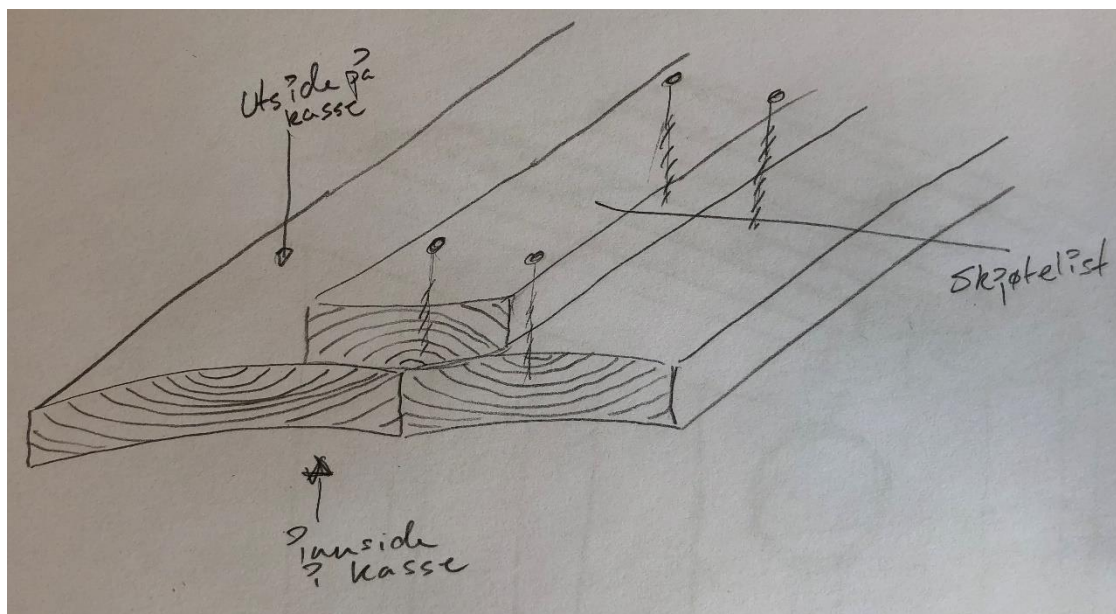 Utside på
kasse
Skjøtelist
innside
i kasse